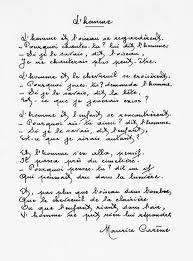 L'homme
L'homme et l'oiseau se regardèrent.
- Pourquoi chantes-tu ? lui dit l'homme.
- Si je le savais, dit l'oiseau,
Je ne chanterais plus peut-être.
L'homme et le chevreuil se croisèrent.
- Pourquoi joues-tu ? demanda l'homme.
- Si je le savais, dit la bête,
Est-ce que je jouerais encor ?
L'homme et l'enfant se rencontrèrent.
- Pourquoi ris-tu ? dit l'homme.
- Si je le savais, dit l'enfant,
Est-ce que je rirais autant ?
Et l'homme s'en alla, pensif.
Il passa près du cimetière.
- Pourquoi penses-tu ? dit un if
Qui dans la lumière.
Et, pas plus que l'oiseau dans
Que le chevreuil de la clairière
Ou que l'enfant dans l'air
L'homme ne put rien lui répondre
Maurice Carême